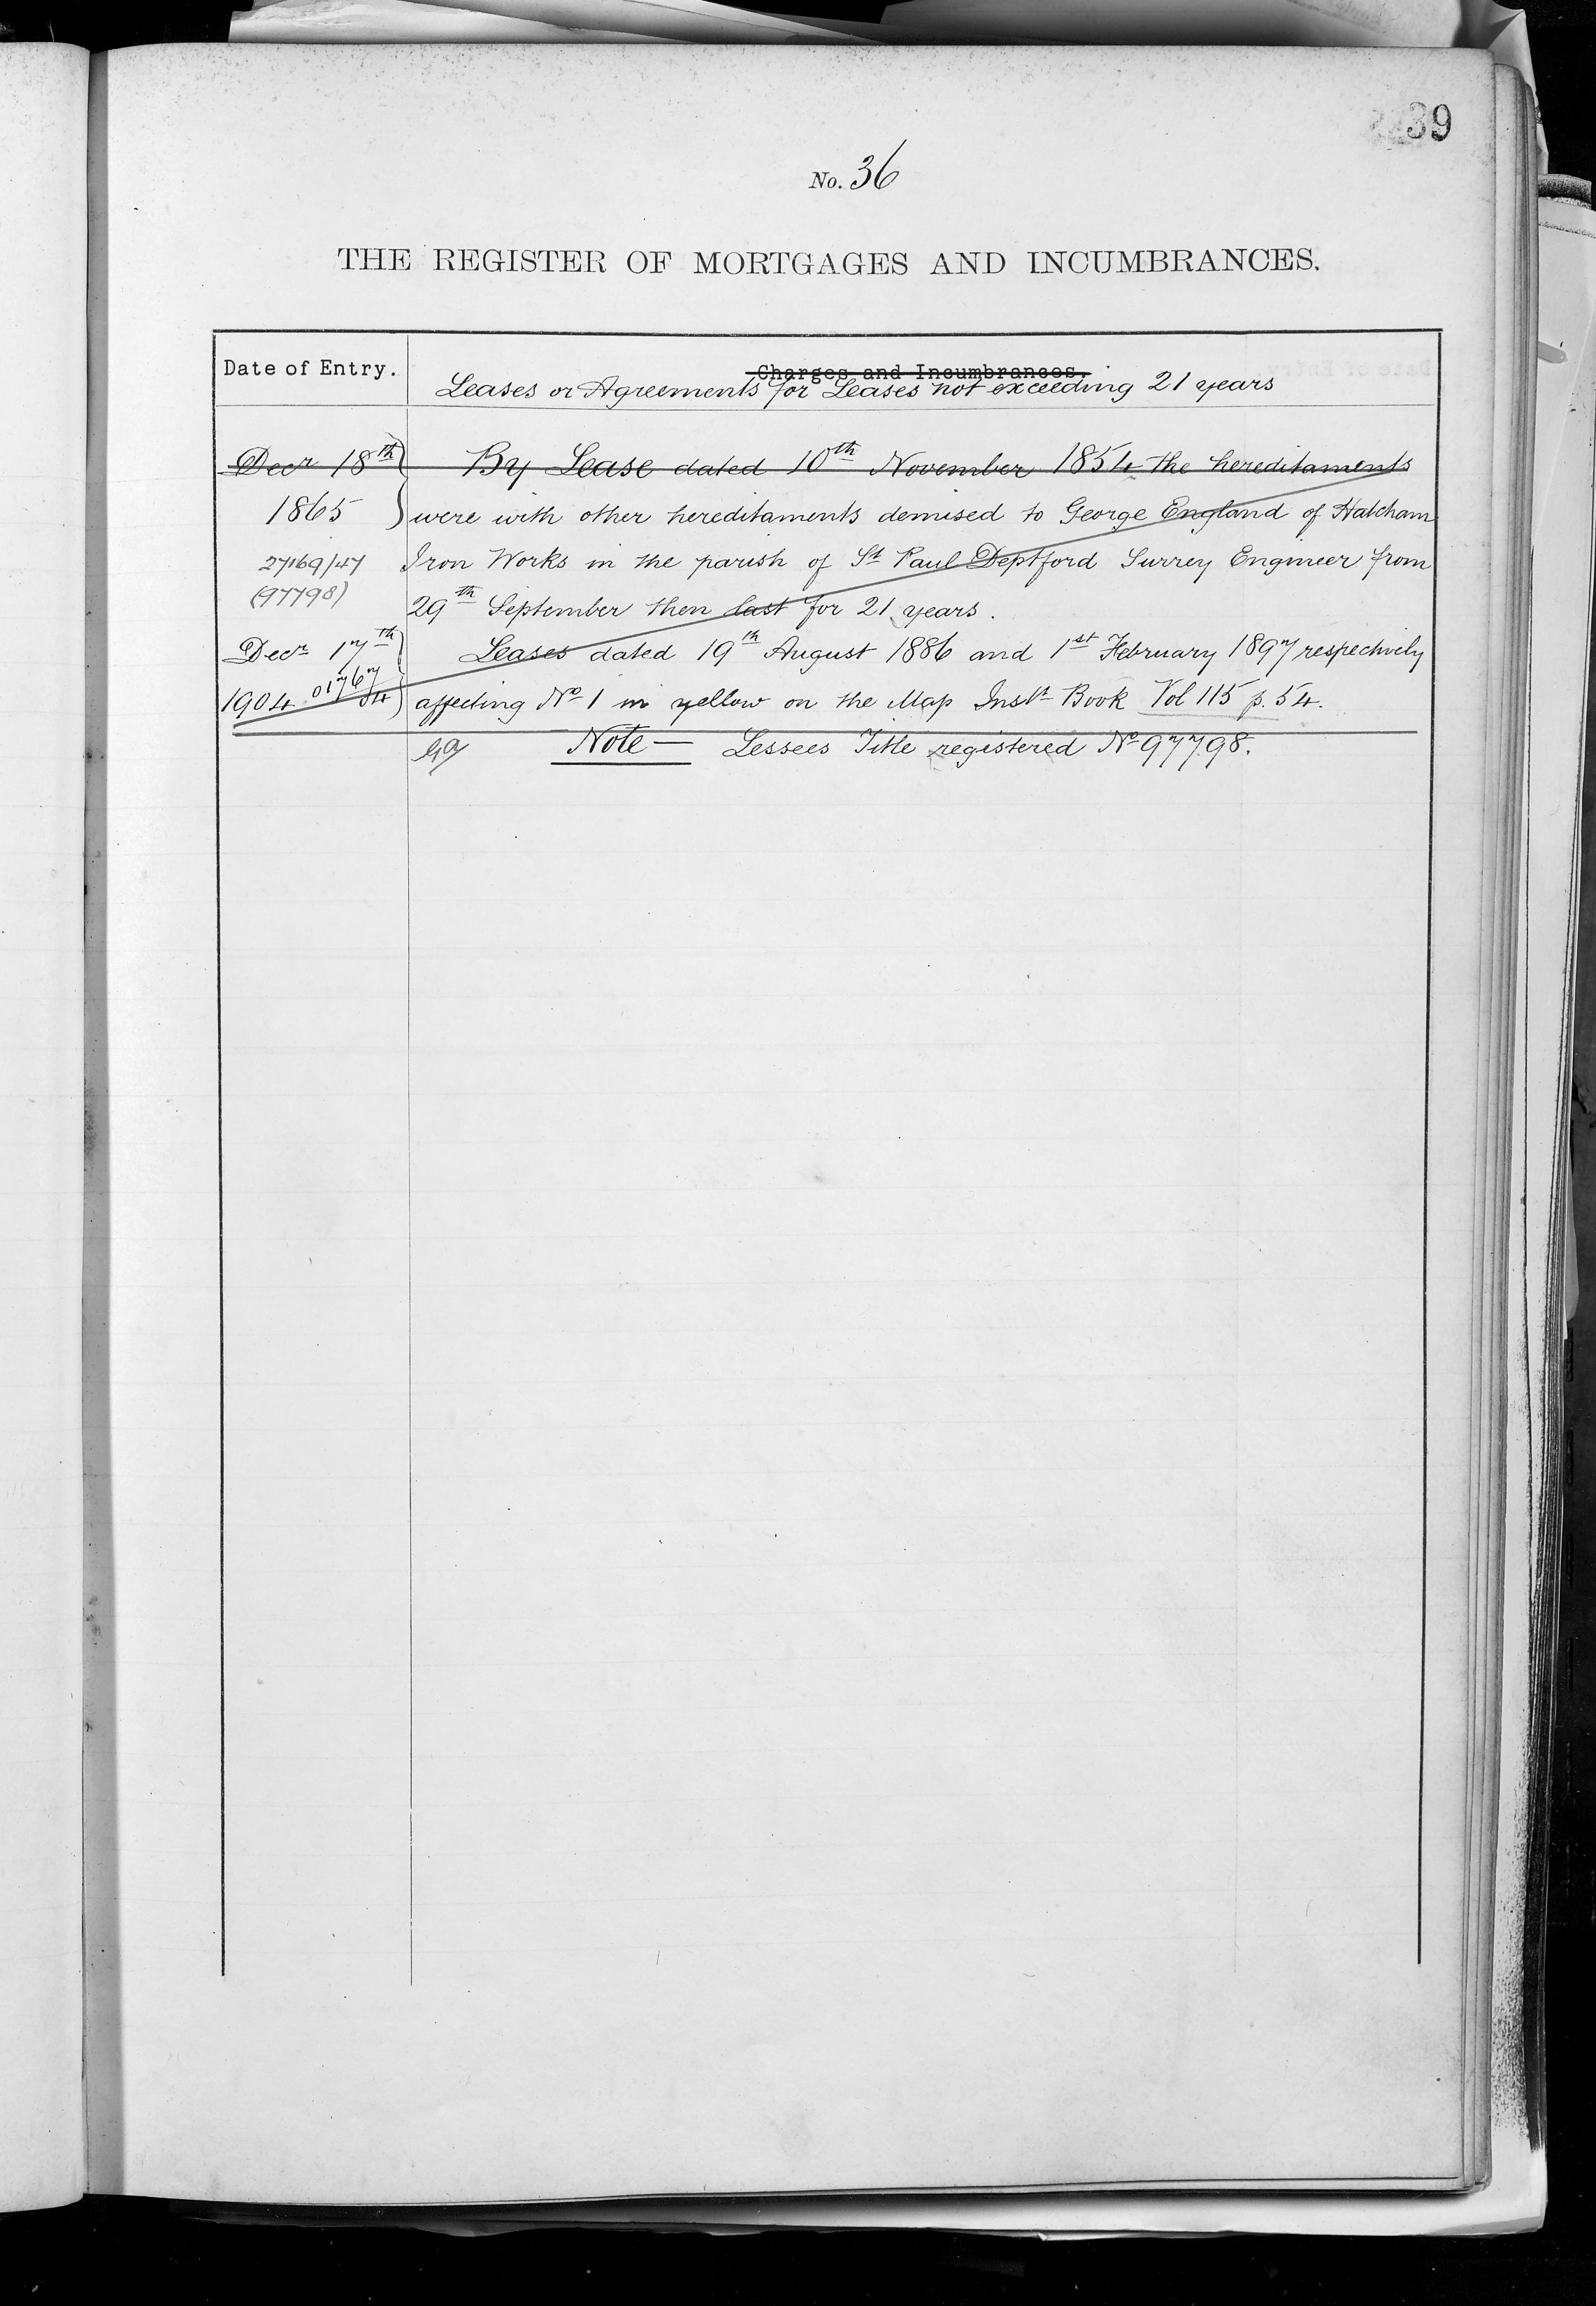 39
No. 36
THE REGISTER OF MORTGAGES AND INCUMBRANCES.
Date of Entry.
Charges and Incumbrances.
Leases or Agreements for Leases not exceeding 21 years
Decr 18th By Lease dated 10th November 1854 the hereditaments
1865 were with other hereditaments demised to George England of Hatcham
27169/47 Iron Works in the parish of St Paul Deptford Surrey Engineer from
(97798) 29th September then last for 21 years.
Decr 17th Leases dated 19th August 1886 and 1st February 1897 respectively
1904 01767/04 affecting No 1 in yellow on the Map Inst Book Vol 115 p. 54.
Note — Lessees Title registered No 97798.